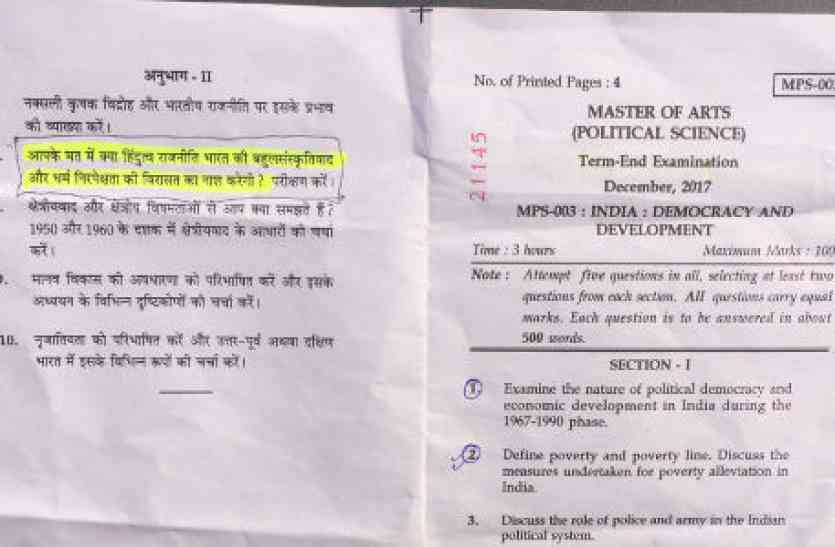 अनुभाग - II
नक्सली कृषक विद्रोह और भारतीय राजनीति पर इसके प्रभाव
की व्याख्या करें।
आपके मत में क्या हिंदुत्व राजनीति भारत की बहुलसंस्कृतिवाद
और धर्म निरपेक्षता की विरासत का नाश करेगी? परीक्षण करें।
क्षेत्रीयवाद और क्षेत्रीय विषमताओं से आप क्या समझते हैं?
1950 और 1960 के दशक में क्षेत्रीयवाद के आधारों की चर्चा
करें।
9. मानव विकास की अवधारणा को परिभाषित करें और इसके
अध्ययन के विभिन्न दृष्टिकोणों की चर्चा करें।
10. नृजातियता को परिभाषित करें और उत्तर-पूर्व अथवा दक्षिण
भारत में इसके विभिन्न रूपों की चर्चा करें।
No. of Printed Pages : 4
MPS-00
21145
MASTER OF ARTS
(POLITICAL SCIENCE)
Term-End Examination
December, 2017
MPS-003 : INDIA : DEMOCRACY AND
DEVELOPMENT
Time : 3 hours Maximum Marks : 100
Note : Attempt five questions in all, selecting at least two
questions from each section. All questions carry equal
marks. Each question is to be answered in about
500 words.
SECTION - I
1. Examine the nature of political democracy and
economic development in India during the
1967-1990 phase.
2. Define poverty and poverty line. Discuss the
measures undertaken for poverty alleviation in
India.
3. Discuss the role of police and army in the Indian
political system.